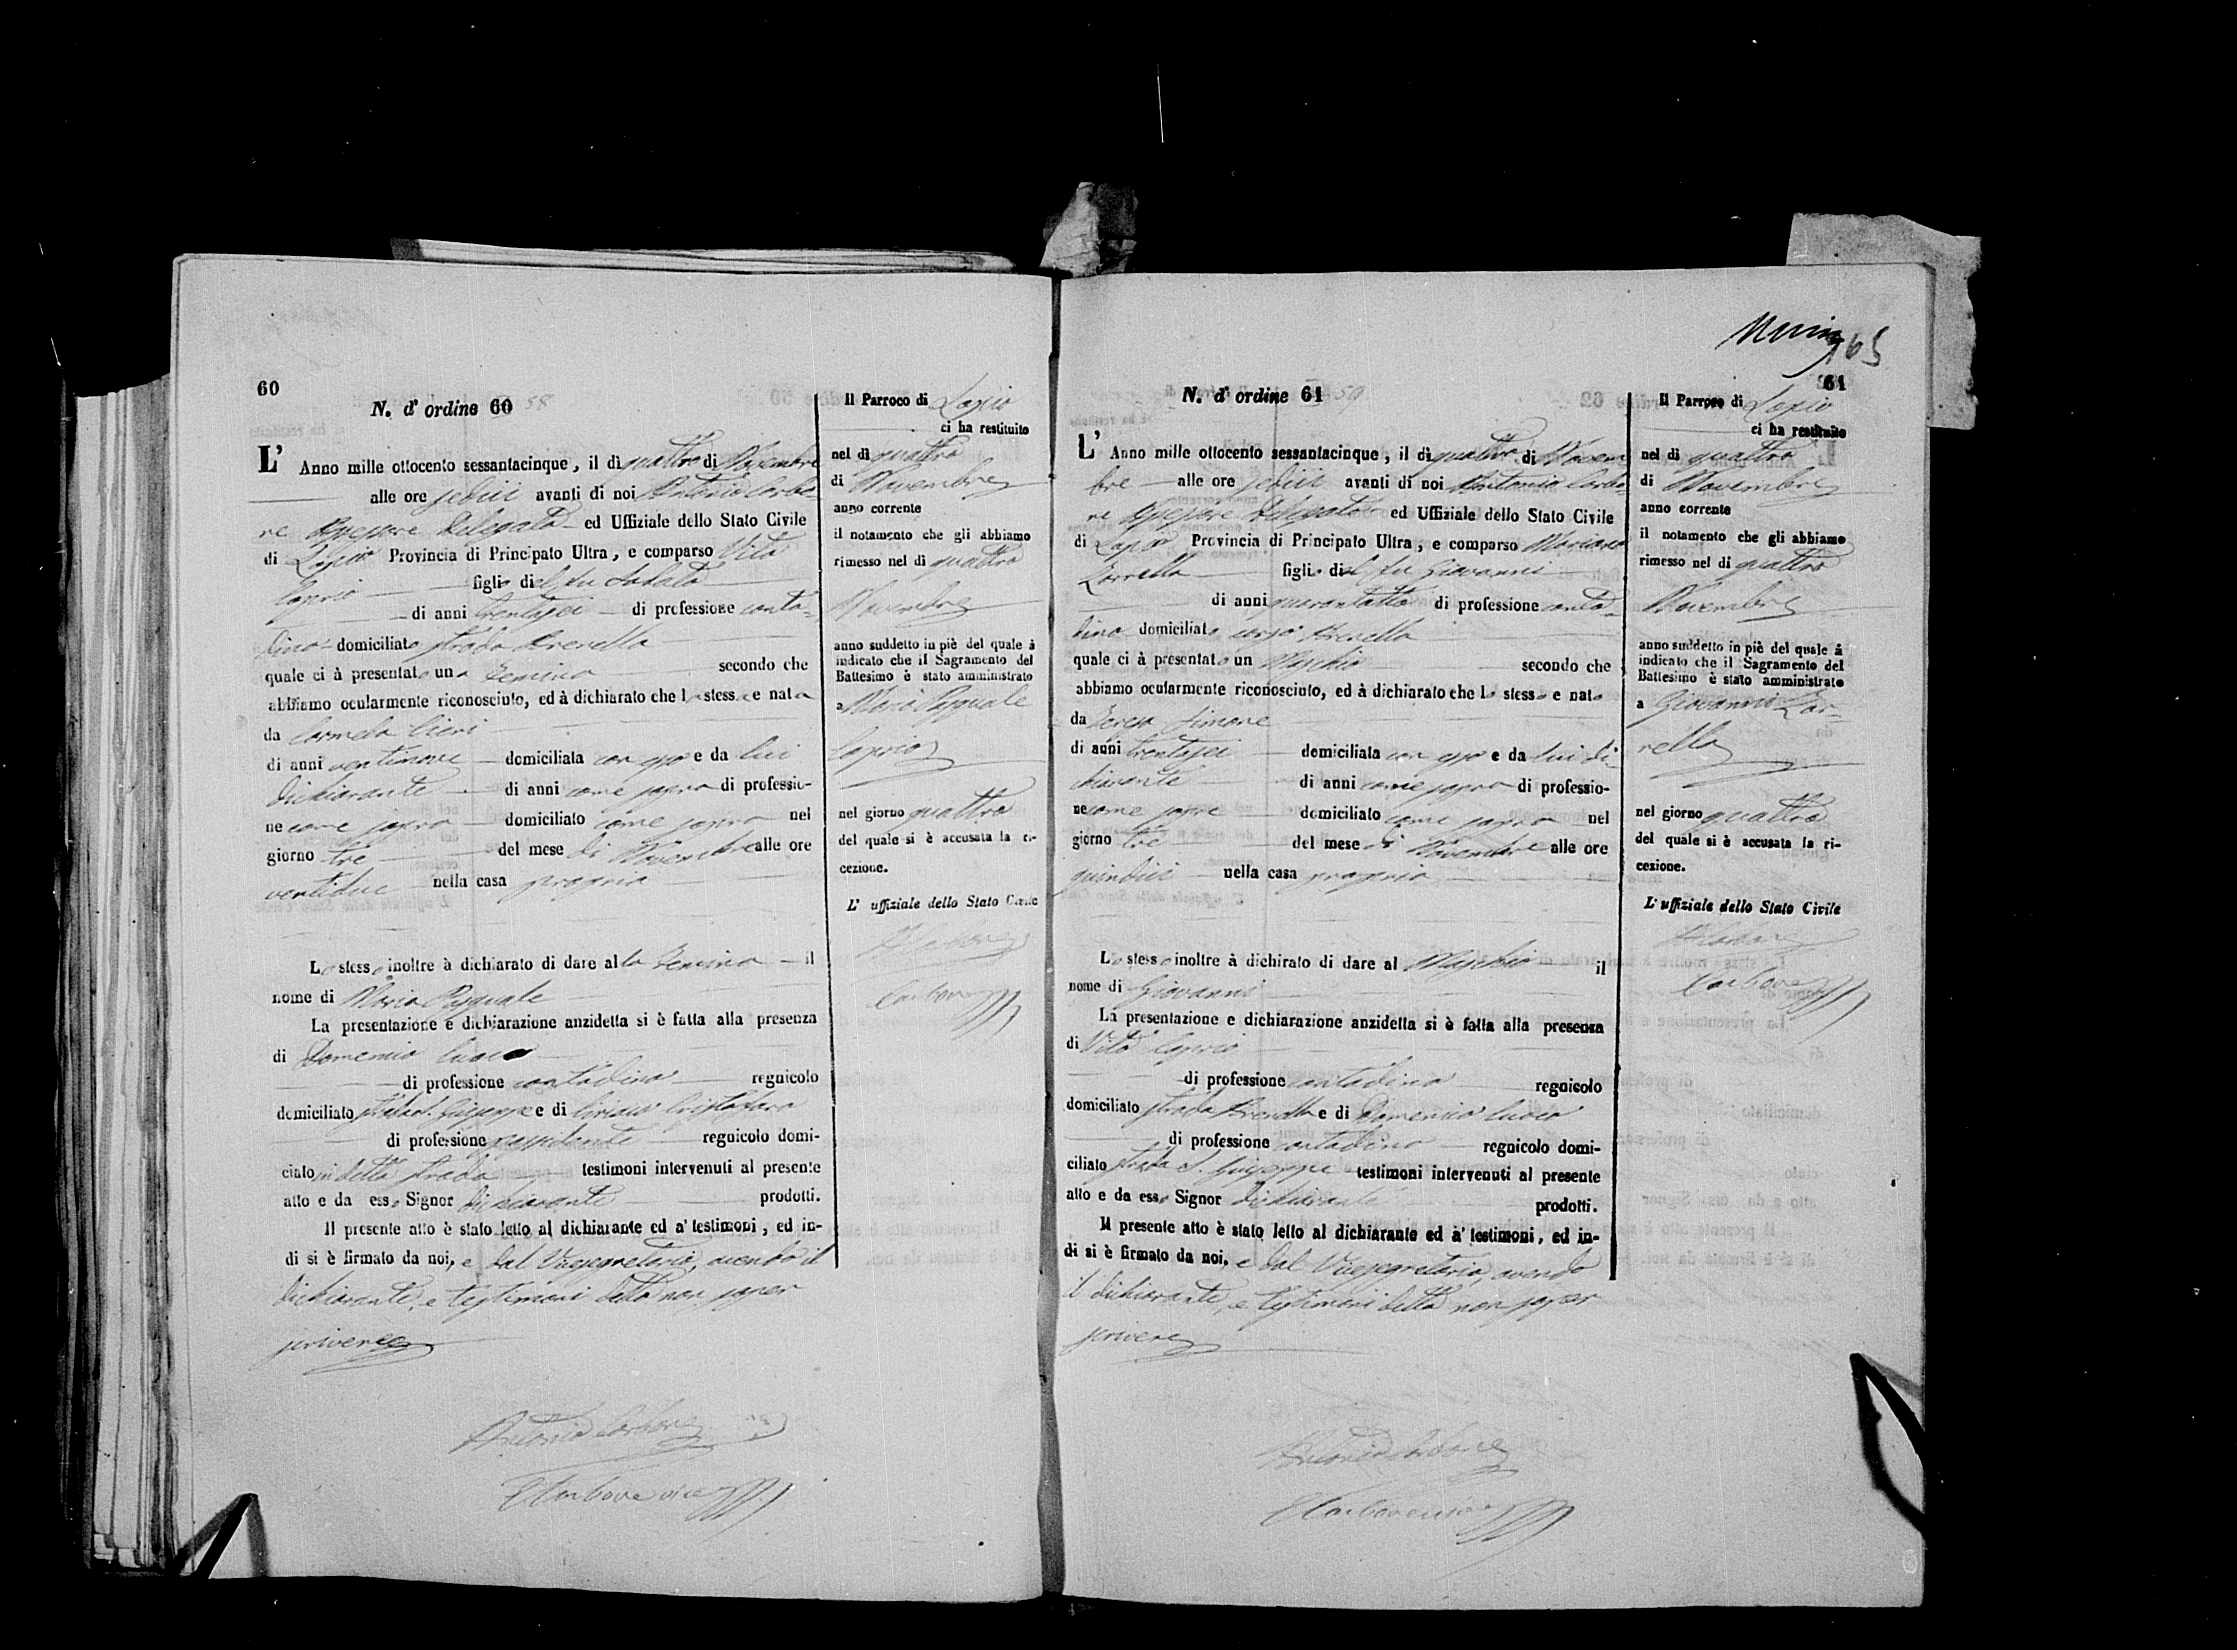 60
N. d' ordine 60
L' Anno mille ottocento sessantacinque, il dì quattro di Novembre
alle ore sedici avanti di noi Antonio Carbo
ne Assessore Delegato ed Uffiziale dello Stato Civile
di Lapio Provincia di Principato Ultra, e comparso Vito
Caprio figlio del fu Sabato
di anni trentasei di professione conta-
dino domiciliato strada Arenella
quale ci à presentato una Femina secondo che
abbiamo ocularmente riconosciuto, ed à dichiarato che la stessa e nata
da Carmela Cieri
di anni ventinove domiciliata con esso e da lui
dichiarante di anni come sopra di professio-
ne come sopra domiciliato come sopra nel
giorno tre del mese di Novembre alle ore
ventidue nella casa propria
Lo stesso inoltre à dichiarato di dare alla Femina il
nome di Maria Pasquale
La presentazione e dichiarazione anzidetta si è fatta alla presenza
di Domenico
di professione contadino regnicolo
domiciliato strada S. Giuseppe e di Ciriaco
di professione regnicolo domi-
ciato in detta strada testimoni intervenuti al presente
atto e da esso Signor dichiarante prodotti.
Il presente atto è stato letto al dichiarante ed a' testimoni, ed in-
di si è firmato da noi, e dal Vicesegretario, avendo il
dichiarante, e testimoni detto non saper
scrivere
Antonio Carbone
Carbone
Il Parroco di Lapio
ci ha restituito
nel dì quattro
di Novembre
anno corrente
il notamento che gli abbiamo
rimesso nel di quattro
Novembre
anno suddetto in piè del quale à
indicato che il Sagramento del
Battesimo è stato amministrato
a Maria Pasquale
Caprio
nel giorno quattro
del quale si è accusata la ri-
cezione.
L' uffiziale dello Stato Civile
A. Carbone
Carbone
65
61
N. d' ordine 61
L' Anno mille ottocento sessantacinque, il dì quattro di Novem
bre alle ore sedici avanti di noi Antonio Carbo-
ne Assessore Delegato ed Uffiziale dello Stato Civile
di Lapio Provincia di Principato Ultra, e comparso Mariano
Zarrella figlio del fu Giovanni
di anni quarantotto di professione conta-
dino domiciliato Arenella
quale ci à presentato un Maschio secondo che
abbiamo ocularmente riconosciuto, ed à dichiarato che lo stesso e nato
da Teresa Simone
di anni trentasei domiciliata con esso e da lui di-
chiarante di anni come sopra di professio-
ne come sopra domiciliato come sopra nel
giorno tre del mese di Novembre alle ore
quindici nella casa propria
Lo stesso inoltre à dichirato di dare al Maschio il
nome di Giovanni
La presentazione e dichiarazione anzidetta si è fatta alla presenza
di Vito Caprio
di professione contadino regnicolo
domiciliato strada Arenella e di Domenico
di professione contadino regnicolo domi-
ciliato strada S. Giuseppe testimoni intervenuti al presente
atto e da esso Signor dichiarante prodotti.
Il presente atto è stato letto al dichiarante ed a' testimoni, ed in-
di si è firmato da noi, e dal Vicesegretario, avendo
il dichiarante, e testimoni detto non saper
scrivere
Antonio Carbone
Carbone
Il Parroco di Lapio
ci ha restituito
nel di quattro
di Novembre
anno corrente
il notamento che gli abbiamo
rimesso nel di quattro
Novembre
anno suddetto in piè del quale à
indicato che il Sagramento del
Battesimo è stato amministrato
a Giovanni Zar-
rella
nel giorno quattro
del quale si è accusata la ri-
cezione.
L' uffiziale dello Stato Civile
A. Carbone
Carbone